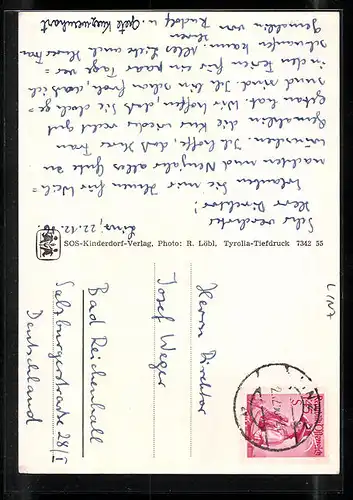 Linz, 22.12.56
Sehr verehrter
Herr Direktor!
Erlauben Sie mir Ihnen für Weih=
nachten und Neujahr alles Gute zu
wünschen. Ich hoffe, daß Ihrer Frau
Gemahlin die Kur wieder recht gut
getan hat. Wir hoffen, daß Sie doch ge=
sund sind. Ich bin schon froh, daß ich
in den Ferien für ein paar Tage ver=
schnaufen kann. Alles Liebe auch Ihrer Frau
Gemahlin von Ihrem
Rudolf u. Grete
SOS-Kinderdorf-Verlag, Photo: R. Löbl, Tyrolia-Tiefdruck 7342 55
Herrn Direktor
Josef Weger
Bad Reichenhall
Salzburgerstrasse 28/I
Deutschland
LINZ